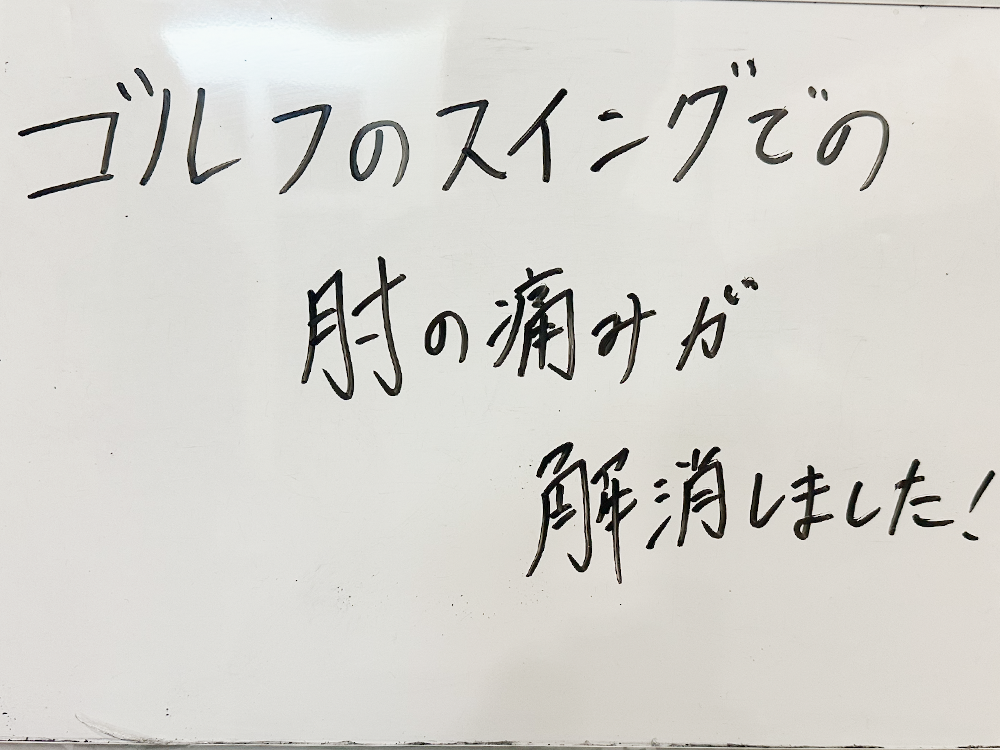 ゴルフのスイングでの
肘の痛みが
解消しました!